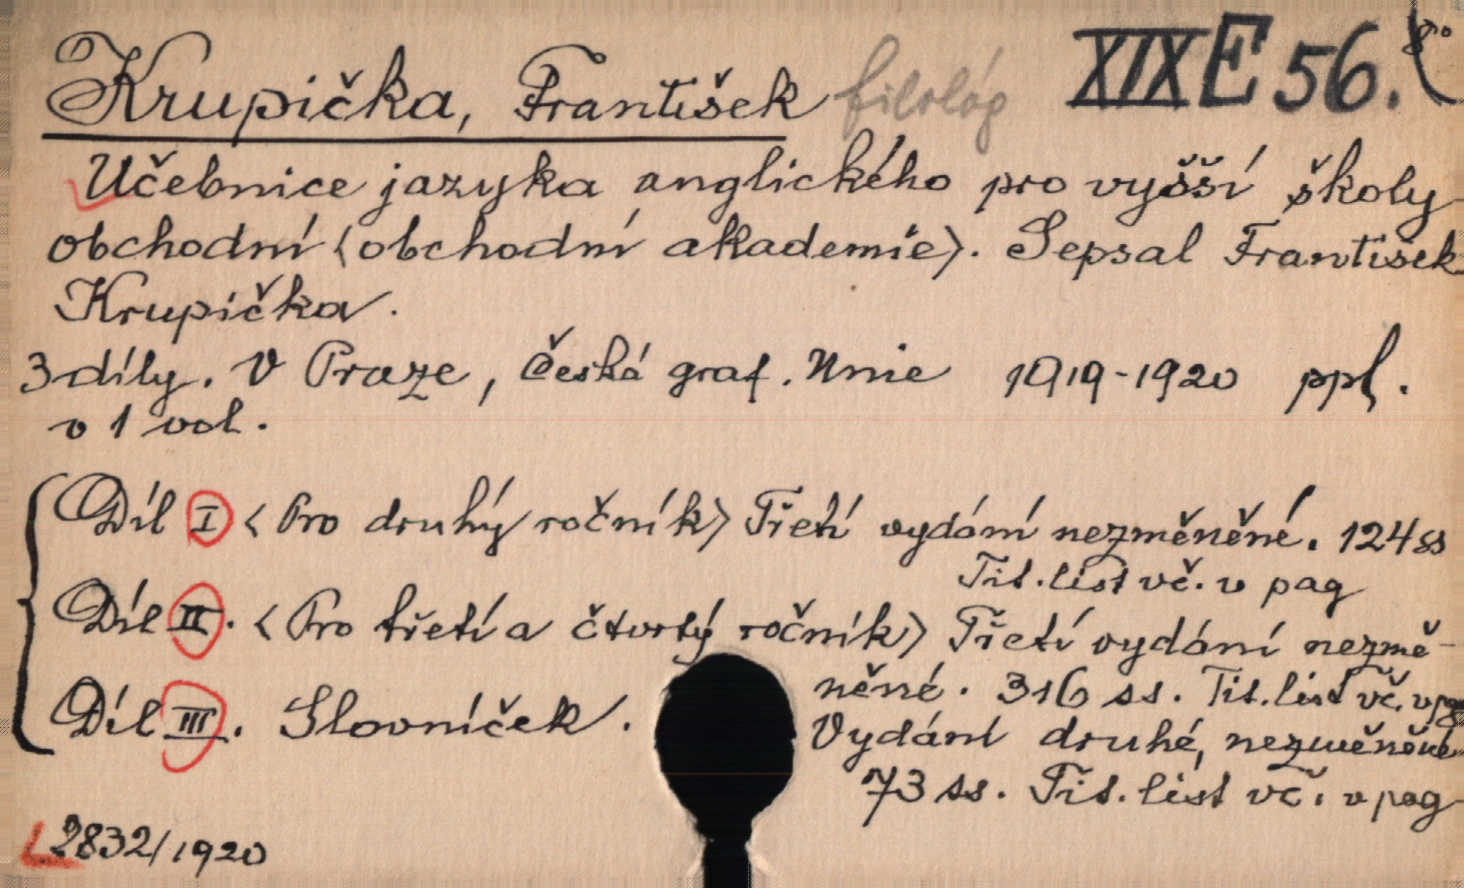 Krupička, František filológ XIX E 56. 8°
Učebnice jazyka anglického pro vyšší školy
obchodní <obchodní akademie>. Sepsal František
Krupička.
3 díly. V Praze, Česká graf. Unie 1919-1920 ppl.
v 1 vol.
Díl I <Pro druhý ročník> Třetí vydání nezměněné. 124 ss
Tit. list vč. v pag
Díl II. <Pro třetí a čtvrtý ročník> Třetí vydání nezmě-
něné. 316 ss. Tit. list vč. v pag
Díl III. Slovníček. Vydání druhé, nezměněné
73 ss. Tit. list vč. v pag
2832/1920